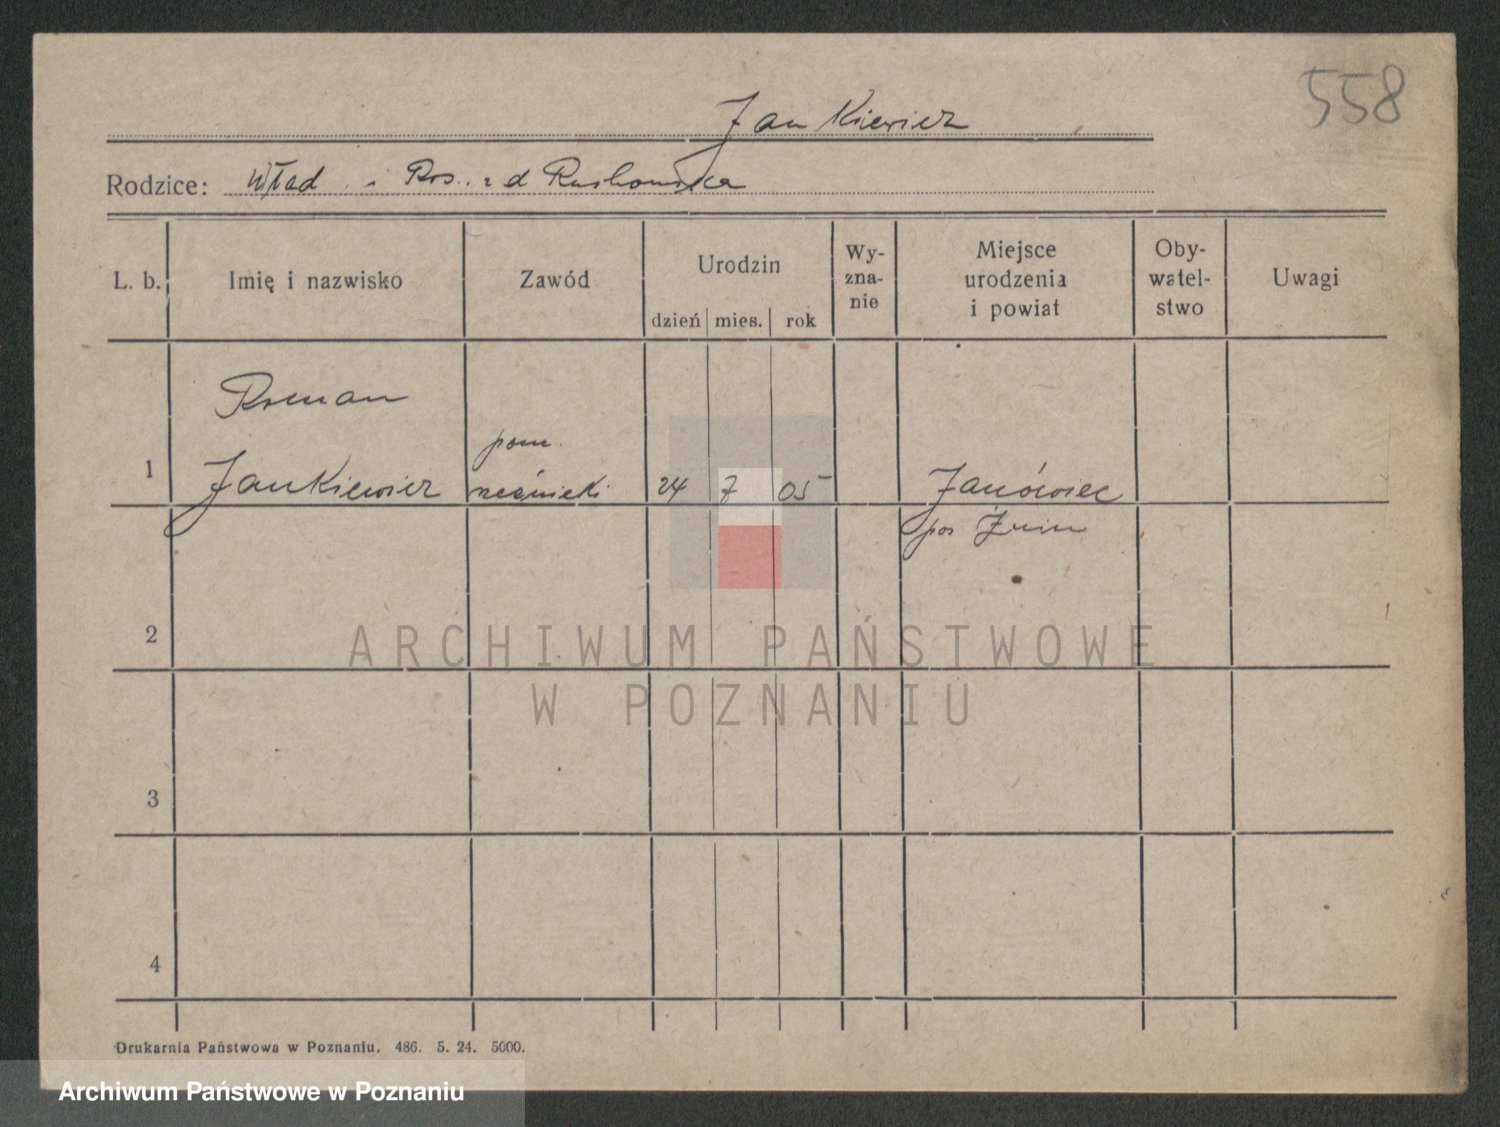 558
Jankiewicz
Rodzice: Wład i Ros. z d
L. b. Imię i nazwisko Zawód Urodzin Wy- Miejsce Oby- Uwagi
zna- urodzenia watel-
nie i powiat stwo
dzień mies. rok
Roman
pom.
1 Jankiewicz rzeźnicki 24 7 05 Janówiec
Żnin
2
3
4
ARCHIWUM PAŃSTWOWE
W POZNANIU
Drukarnia Państwowa w Poznaniu. 486. 5. 24. 5000.
Archiwum Państwowe w Poznaniu